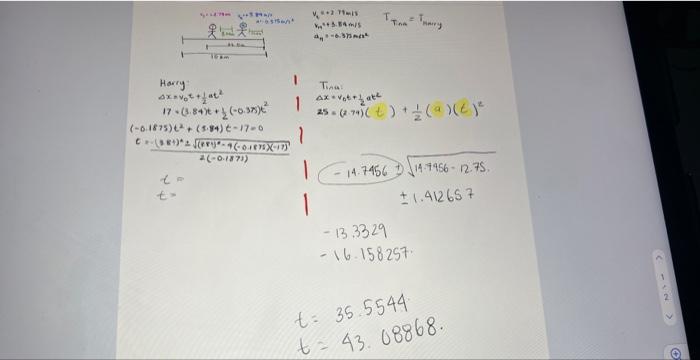 V_t = +2.79 m/s
V_H = +3.84 m/s
a_H = -0.375 m/s²
T_Tina = T_Harry
Harry:
Δx = v₀t + ½at²
17 = (3.84)t + ½(-0.375)t²
(-0.1875)t² + (3.84)t - 17 = 0
2(-0.1875)
t =
t =
Tina:
Δx = v₀t + ½at²
25 = (2.79)(t) + ½(a)(t)²
-14.7456 ± √14.7456 - 12.75.
± 1.412657
-13.3329
-16.158257.
t = 35.5544
t = 43.08868.
1 / 2